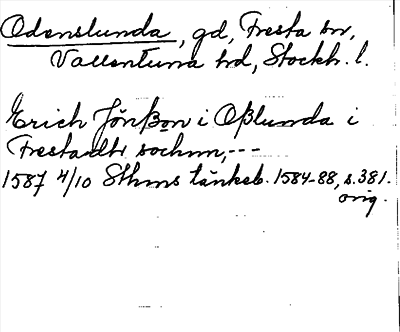 Odenslunda, gd, Fresta sn,
Vallentuna hd, Stockh. l.
Erich Jönßon i Oßlunda i
Frestadtr sochnn,---
1587 4/10 Sthms tänkeb. 1584-88, s. 381.
orig.